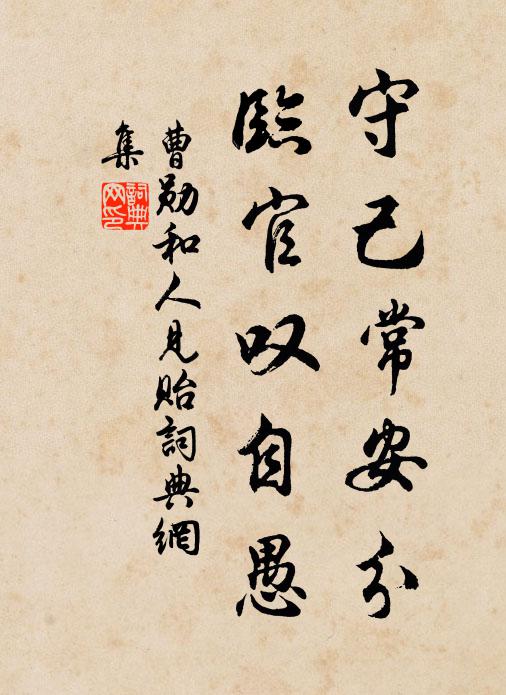 守己常安分
臨官叹自愚
曹勛和人見貽詞典網
集
詞典
网印